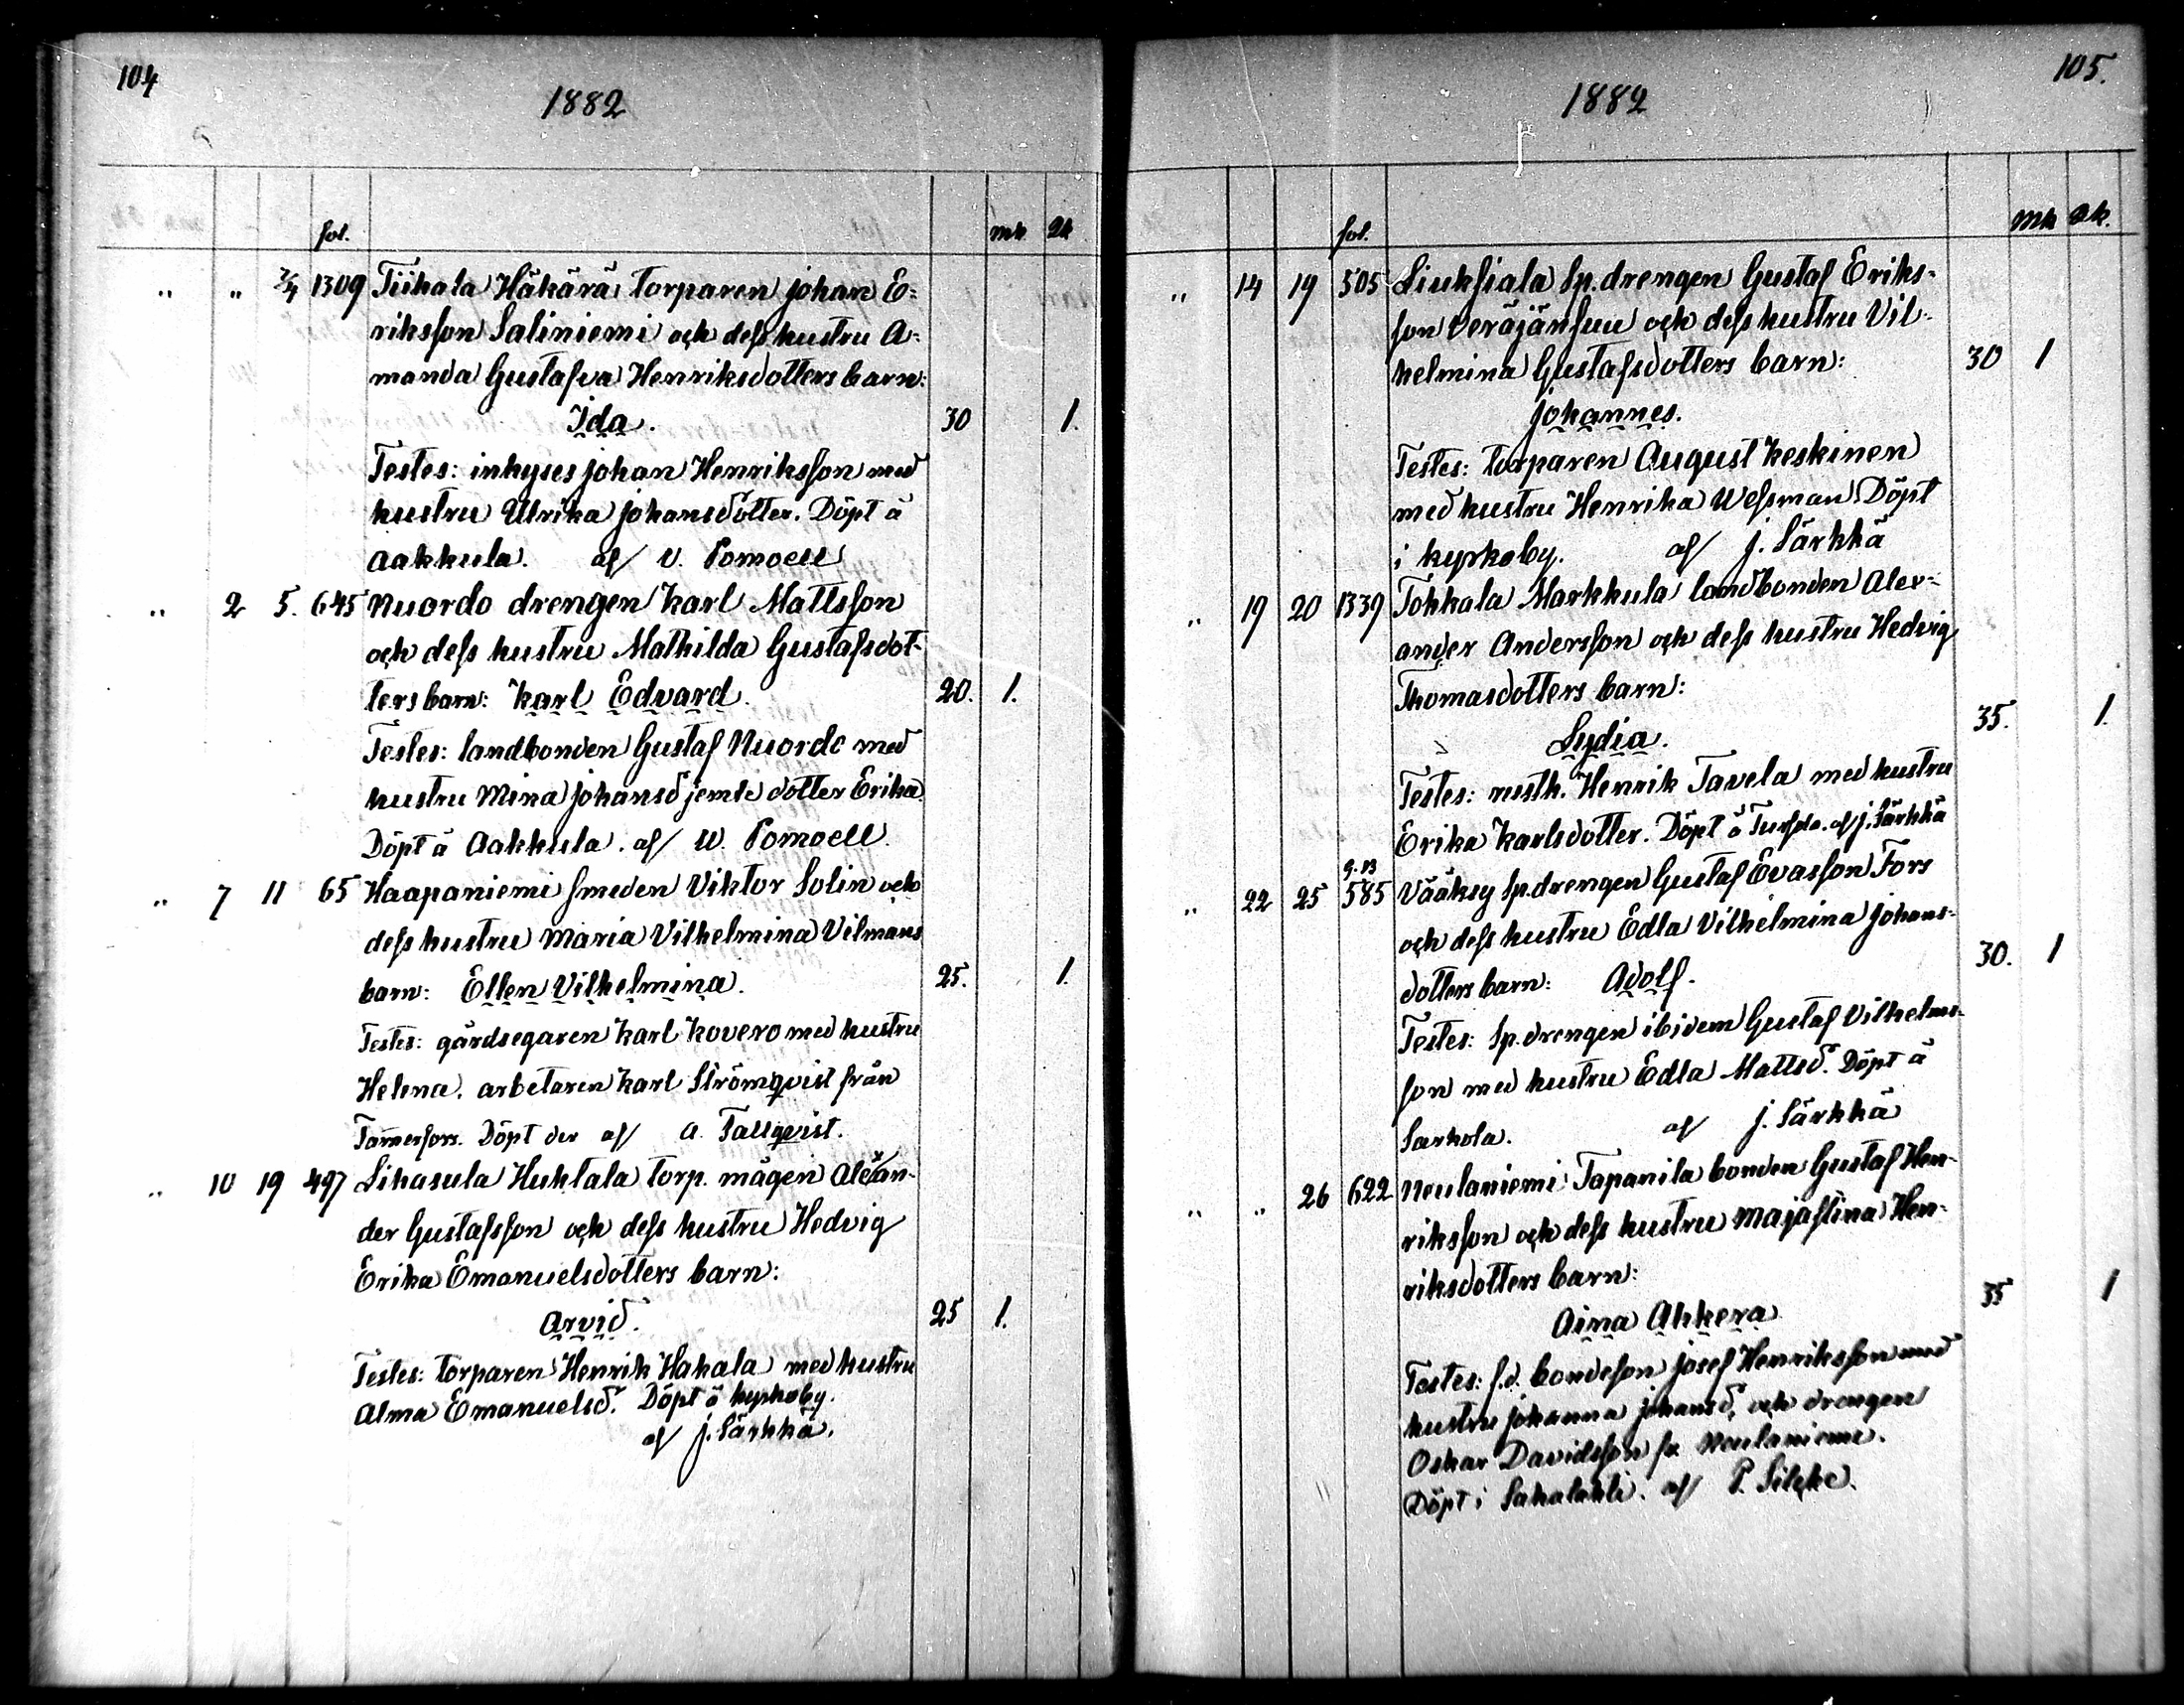 104
1882
fol. mk qk
" " 2/4 1309 Tiihala Häkärä torparen Johan E=
riksson Saliniemi och dess hustru A=
manda Gustafva Henriksdotters barn:
Ida. 30 1.
Testes: inhyses Johan Henriksson med
hustru Ulrika Johansdotter. Döpt å
Aakkula. af V. Pomoell
" 2 5. 645 Nuordo drengen Karl Mattsson
och dess hustru Mathilda Gustafsdot-
ters barn: Karl Edvard. 20. 1.
Testes: landbonden Gustaf Nuordo med
hustru Mina Johansd jemte dotter Erika.
Döpt å Aakkula. af W. Pomoell.
" 7 11 65 Haapaniemi smeden Viktor Solin och
dess hustru Maria Vilhelmina Vilmans
barn: Ellen Vilhelmina. 25. 1.
Testes: gårdsegaren Karl Kovero med hustru
Helena. arbetaren Karl Strömqvist från
Tammerfors. Döpt der af A. Tallqvist.
" 10 19 497 Lihasula Huhtala torp. mågen Alexan-
der Gustafsson och dess hustru Hedvig
Erika Emanuelsdotters barn:
Arvid. 25 1.
Testes: torparen Henrik Hakala med hustru
Alma Emanuelsd. Döpt å kyrkoby.
af J. Särkkä.
105.
1882
fol. mk qk.
" 14 19 505 Liuksiala Sp. drengen Gustaf Eriks=
son Veräjänsuu och dess hustru Vil-
helmina Gustafsdotters barn: 30 1
Johannes.
Testes: torparen August Keskinen
med hustru Henrika Wessman Döpt
i kyrkoby. af J. Särkkä
" 19 20 1339 Tohkala Markkula landbonden Alex-
ander Andersson och dess hustru Hedvig
Thomasdotters barn:
Lydia. 35. 1.
Testes: rusth. Henrik Tavela med hustru
Erika Karlsdotter. Döpt å af J. Särkkä
" 22 25 585 Vääksy sp. drengen Gustaf Evasson Fors
och dess hustru Edla Vilhelmina Johans-
dotters barn: Adolf. 30. 1
Testes: Sp. drengen ibidem Gustaf Vilhelms-
son med hustru Edla Mattsd. Döpt å
Sarkola. af J. Särkkä
" " 26 622 Neulaniemi Tapanila bonden Gustaf Hen-
riksson och dess hustru Majastina Hen-
riksdotters barn:
Aina Ahkera 35 1
Testes: f.d. bondeson Josef Henriksson med
hustru Johanna Johansd. och drengen
Oskar Davidsson fr Neulaniemi.
Döpt i Sahalahti. af P. Silcke.